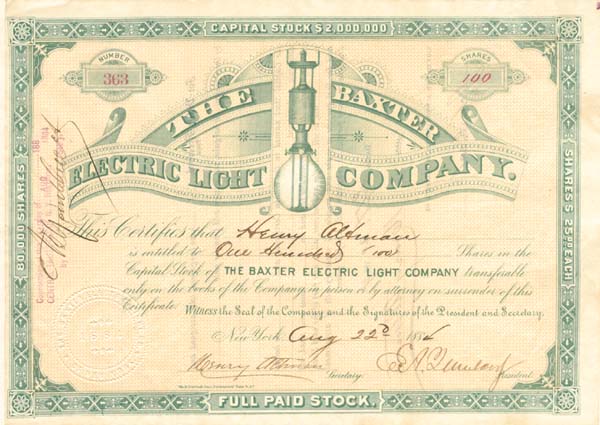 CAPITAL STOCK $2,000,000
NUMBER
363
SHARES
100
THE BAXTER
ELECTRIC LIGHT COMPANY.
80,000 SHARES
SHARES $25.00 EACH
This Certifies that Henry Altman
is entitled to One Hundred 100 Shares in the
Capital Stock of THE BAXTER ELECTRIC LIGHT COMPANY transferable
only on the books of the Company, in person or by attorney on surrender of this
Certificate. WITNESS the Seal of the Company and the Signatures of the President and Secretary.
New York Aug 22d 1884
Henry Altman
Secretary.
President
FULL PAID STOCK.